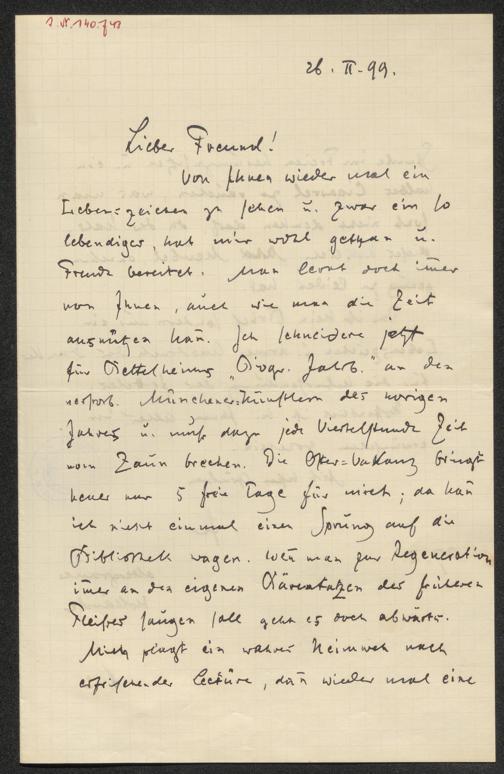 26. II. 99.
Lieber Freund!
Von Ihnen wieder mal ein
Lebens=zeichen zu sehen u. zwar ein so
lebendiges, hat mir wohl gethan u.
Freude bereitet. Man lernt doch im̄er
von Ihnen, auch wie man die Zeit
ausnützen kan̄. Ich schneidere jetzt
für Bettelheims „Biogr. Jahrb." an den
verstorb. Münchener=Künstlern des vorigen
Jahres u. muß dazu jede Viertelstunde Zeit
vom Zaun brechen. Die Oster=Vakanz bringt
heuer nur 5 freie Tage für mich; da kan̄
ich nicht einmal einen Sprung auf die
Bibliothek wagen. Wen̄ man zur Regeneration
im̄er an den eigenen Bärentatzen des früheren
Fleißes saugen soll geht es doch abwärts.
Mich plagt ein wahres Heimweh nach
erfrischender Lectüre, dan̄ wieder mal eine